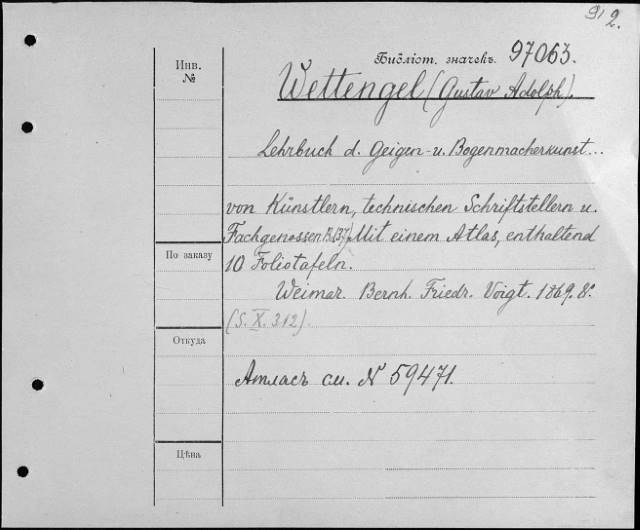 91 2.
Библіот. значекъ 97063.
Инв.
№
Wettengel (Gustav Adolph).
Lehrbuch d. Geigen- u. Bogenmacherkunst...
von Künstlern, technischen Schriftstellern u.
Fachgenossen Mit einem Atlas, enthaltend
По заказу
10 Foliotafeln.
Weimar. Bernh. Friedr. Voigt. 1869. 8º.
(S. X. 312).
Откуда
Атласъ см. N 59471.
Цѣна